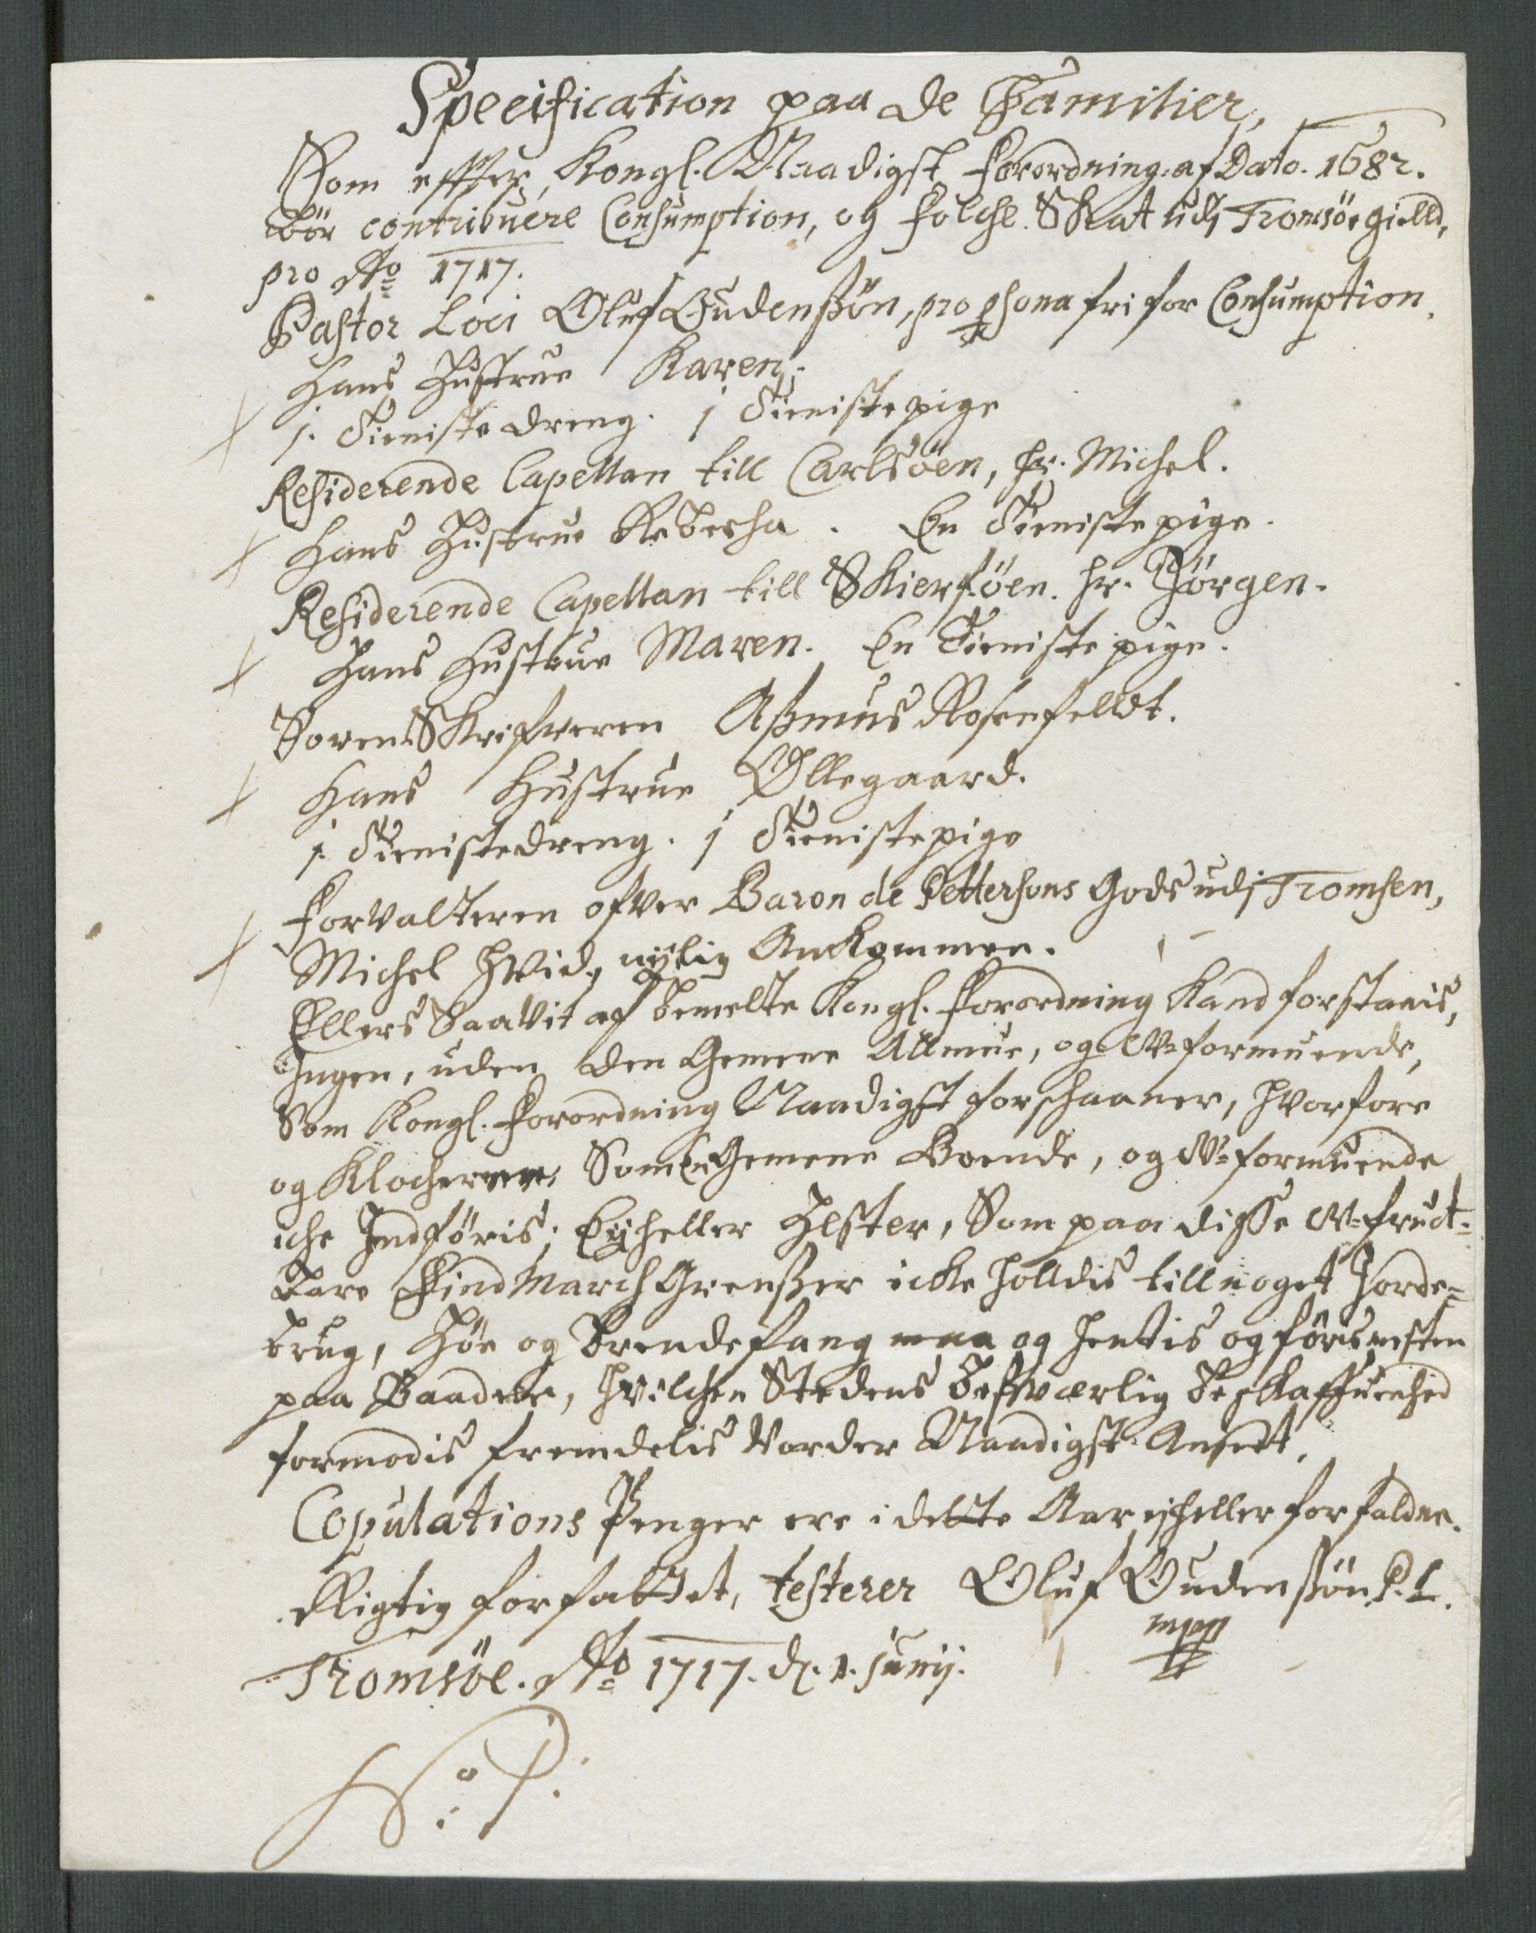 Specification paa de Familier,
Som effter Kongl. Naadigst forordning af Dato. 1682.
bör contribuere Consumption, og folche Skat udj Tromsöe gielld,
pro Ao 1717.
Pastor Loci Oluf Oudenßön, pro psona fri for Consumption.
Hans Hustrue Karen.
1. Tieniste dreng. 1 Tienistepige
Residerende Capellan till Carlsöen, hr. Michel.
Hans Hustrue Rebecha. En Tienistepige.
Residerende Capellan till Skierföen. hr. Jörgen.
Hans Hustrue Maren. En Tieniste pige.
Soren Skrifveren Aßmus Rosenfelldt.
Hans Hustrue Ollegaard.
1. Tienistedreng. 1 Tienistepige
Forvalteren ofver Baron de Pettersons Gods udj Tromsen,
Michel Hvid, nylig Ankommen.
Ellers Saavit af bemelte Kongl. forordning Kand forstaais,
Ingen, uden den Gemene Allmue, og U-formuende,
Som Kongl. forordning Naadigst forschaaner, hvorfore
og Klocherne, Som Gemene Boende, og U-formuende
iche Indföris; Eyheller Hester, Som paa disse U-fruct-
bare Find March Grenßer icke holldis till noget Jorde-
brug, Höe og Brendefang maa og hentis og föris mesten
paa Baadene, hvilchen Stedens besværlig beskaffuenhed
formodis fremdelis vorder Naadigst Anseet.
Copulations Penger ere i dette Aar eyheller forfaldne.
Rigtig forfattet, testerer Oluf Oudenßön P. L.
mpp
Tromsöe. Ao 1717. d. 1. Junij.
No 1.